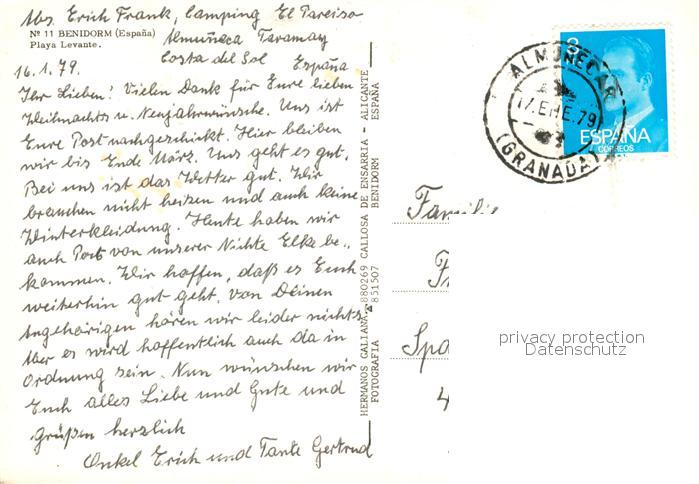 Abs. Erich Frank, Camping El Pareiso
Nº 11 BENIDORM (España)
Playa Levante.
Almuñeca Taramay
Costa del Sol España
16.1.79.
Ihr Lieben! Vielen Dank für Eure lieben
Weihnachts u. Neujahrwünsche. Uns ist
Eure Post nachgeschickt. Hier bleiben
wir bis Ende März. Uns geht es gut.
Bei uns ist das Wetter gut. Wir
brauchen nicht heizen und auch keine
Winterkleidung. Heute haben wir
auch Post von unserer Nichte Elke be-
kommen. Wir hoffen, daß es Euch
weiterhin gut geht. Von Deinen
Angehörigen hören wir leider nichts.
Aber es wird hoffentlich auch da in
Ordnung sein. Nun wünschen wir
Euch alles Liebe und Gute und
grüßen herzlich
Onkel Erich und Tante Gertrud
HERMANOS GALIANA - 880269 CALLOSA DE ENSARRIA - ALICANTE
FOTOGRAFIA 851507 BENIDORM ESPAÑA
8
ALMUÑECAR
17.ENE.79
(GRANADA)
ESPAÑA
CORREOS
Familie
F
Spa
4
privacy protection
Datenschutz